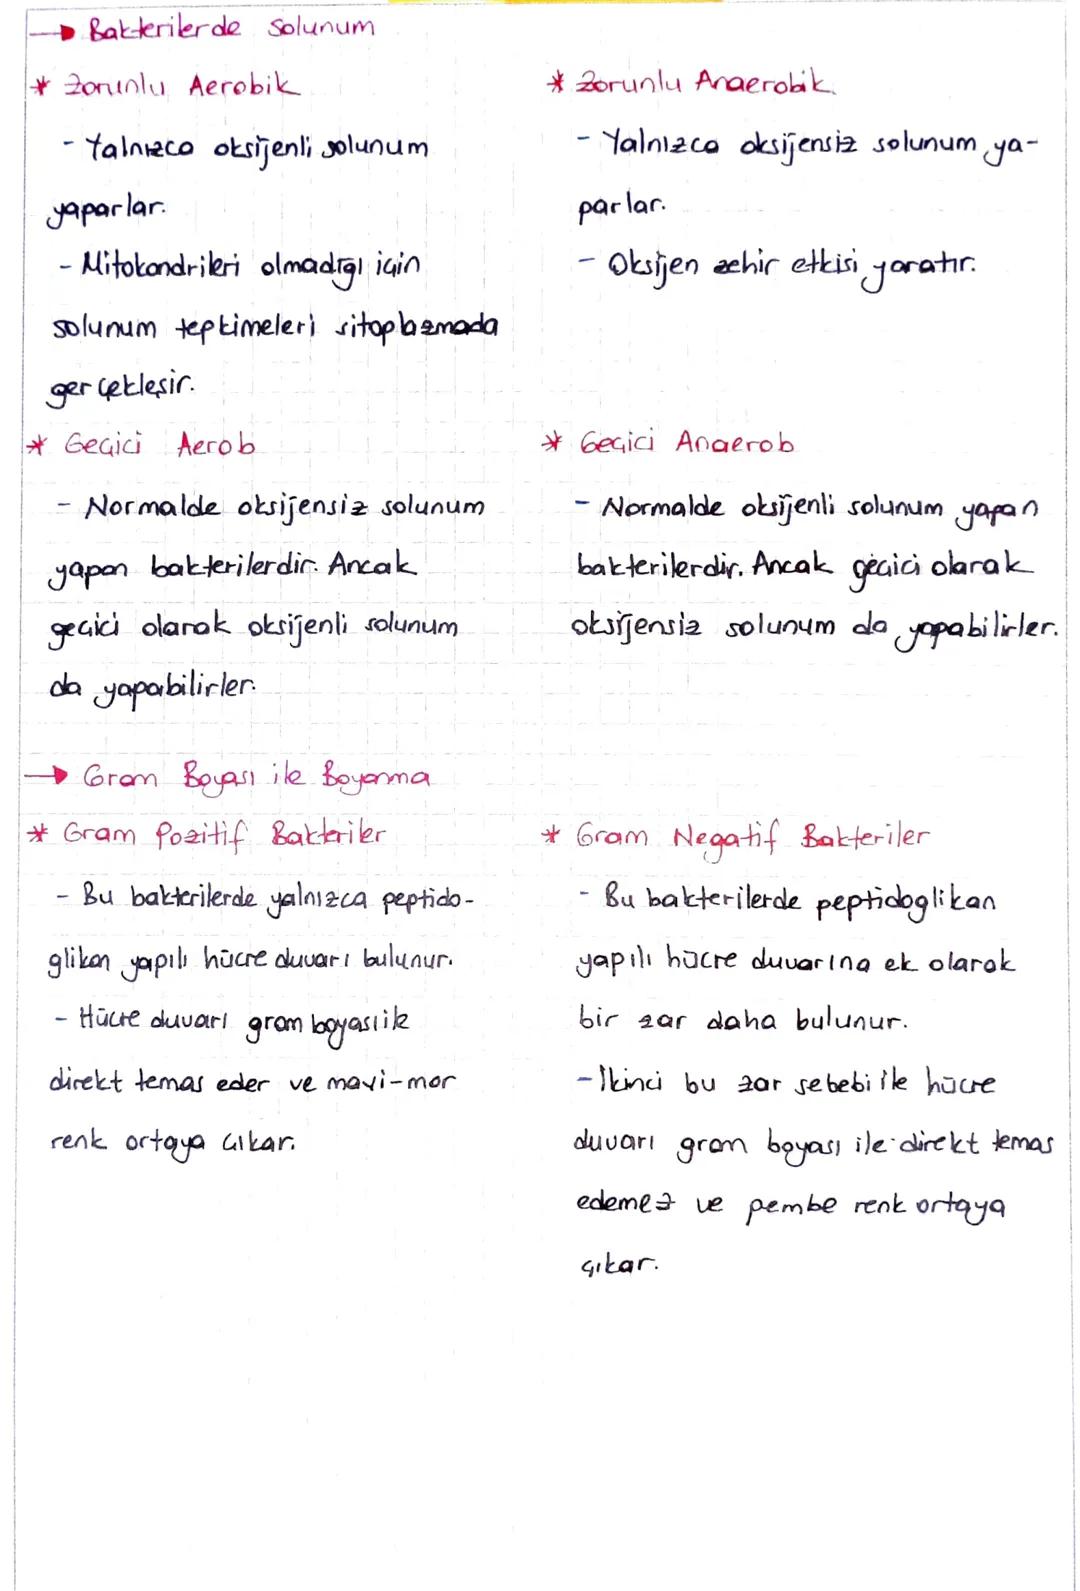 → Bakterilerde Solunum
* Zorunlu Aerobik
- Yalnızca oksijenli solunum
yaparlar.
- Mitokondrileri olmadığı için
solunum tepkimeleri sitoplazmada
gerçekleşir.
* Zorunlu Anaerobik
- Yalnızca oksijensiz solunum ya-
parlar.
- Oksijen zehir etkisi yaratır.
* Geçici Aerob
- Normalde oksijensiz solunum
yapan bakterilerdir. Ancak
geçici olarak oksijenli solunum
da yapabilirler.
* Geçici Anaerob
- Normalde oksijenli solunum yapan
bakterilerdir. Ancak geçici olarak
oksijensiz solunum da yapabilirler.
→ Gram Boyası ile Boyanma
* Gram Pozitif Bakteriler
- Bu bakterilerde yalnızca peptido-
glikan yapılı hücre duvarı bulunur.
- Hücre duvarı gram boyası ile
direkt temas eder ve mavi-mor
renk ortaya çıkar.
* Gram Negatif Bakteriler
- Bu bakterilerde peptidoglikan
yapılı hücre duvarına ek olarak
bir zar daha bulunur.
- İkinci bu zar sebebi ile hücre
duvarı gram boyası ile direkt temas
edemez ve pembe renk ortaya
çıkar.